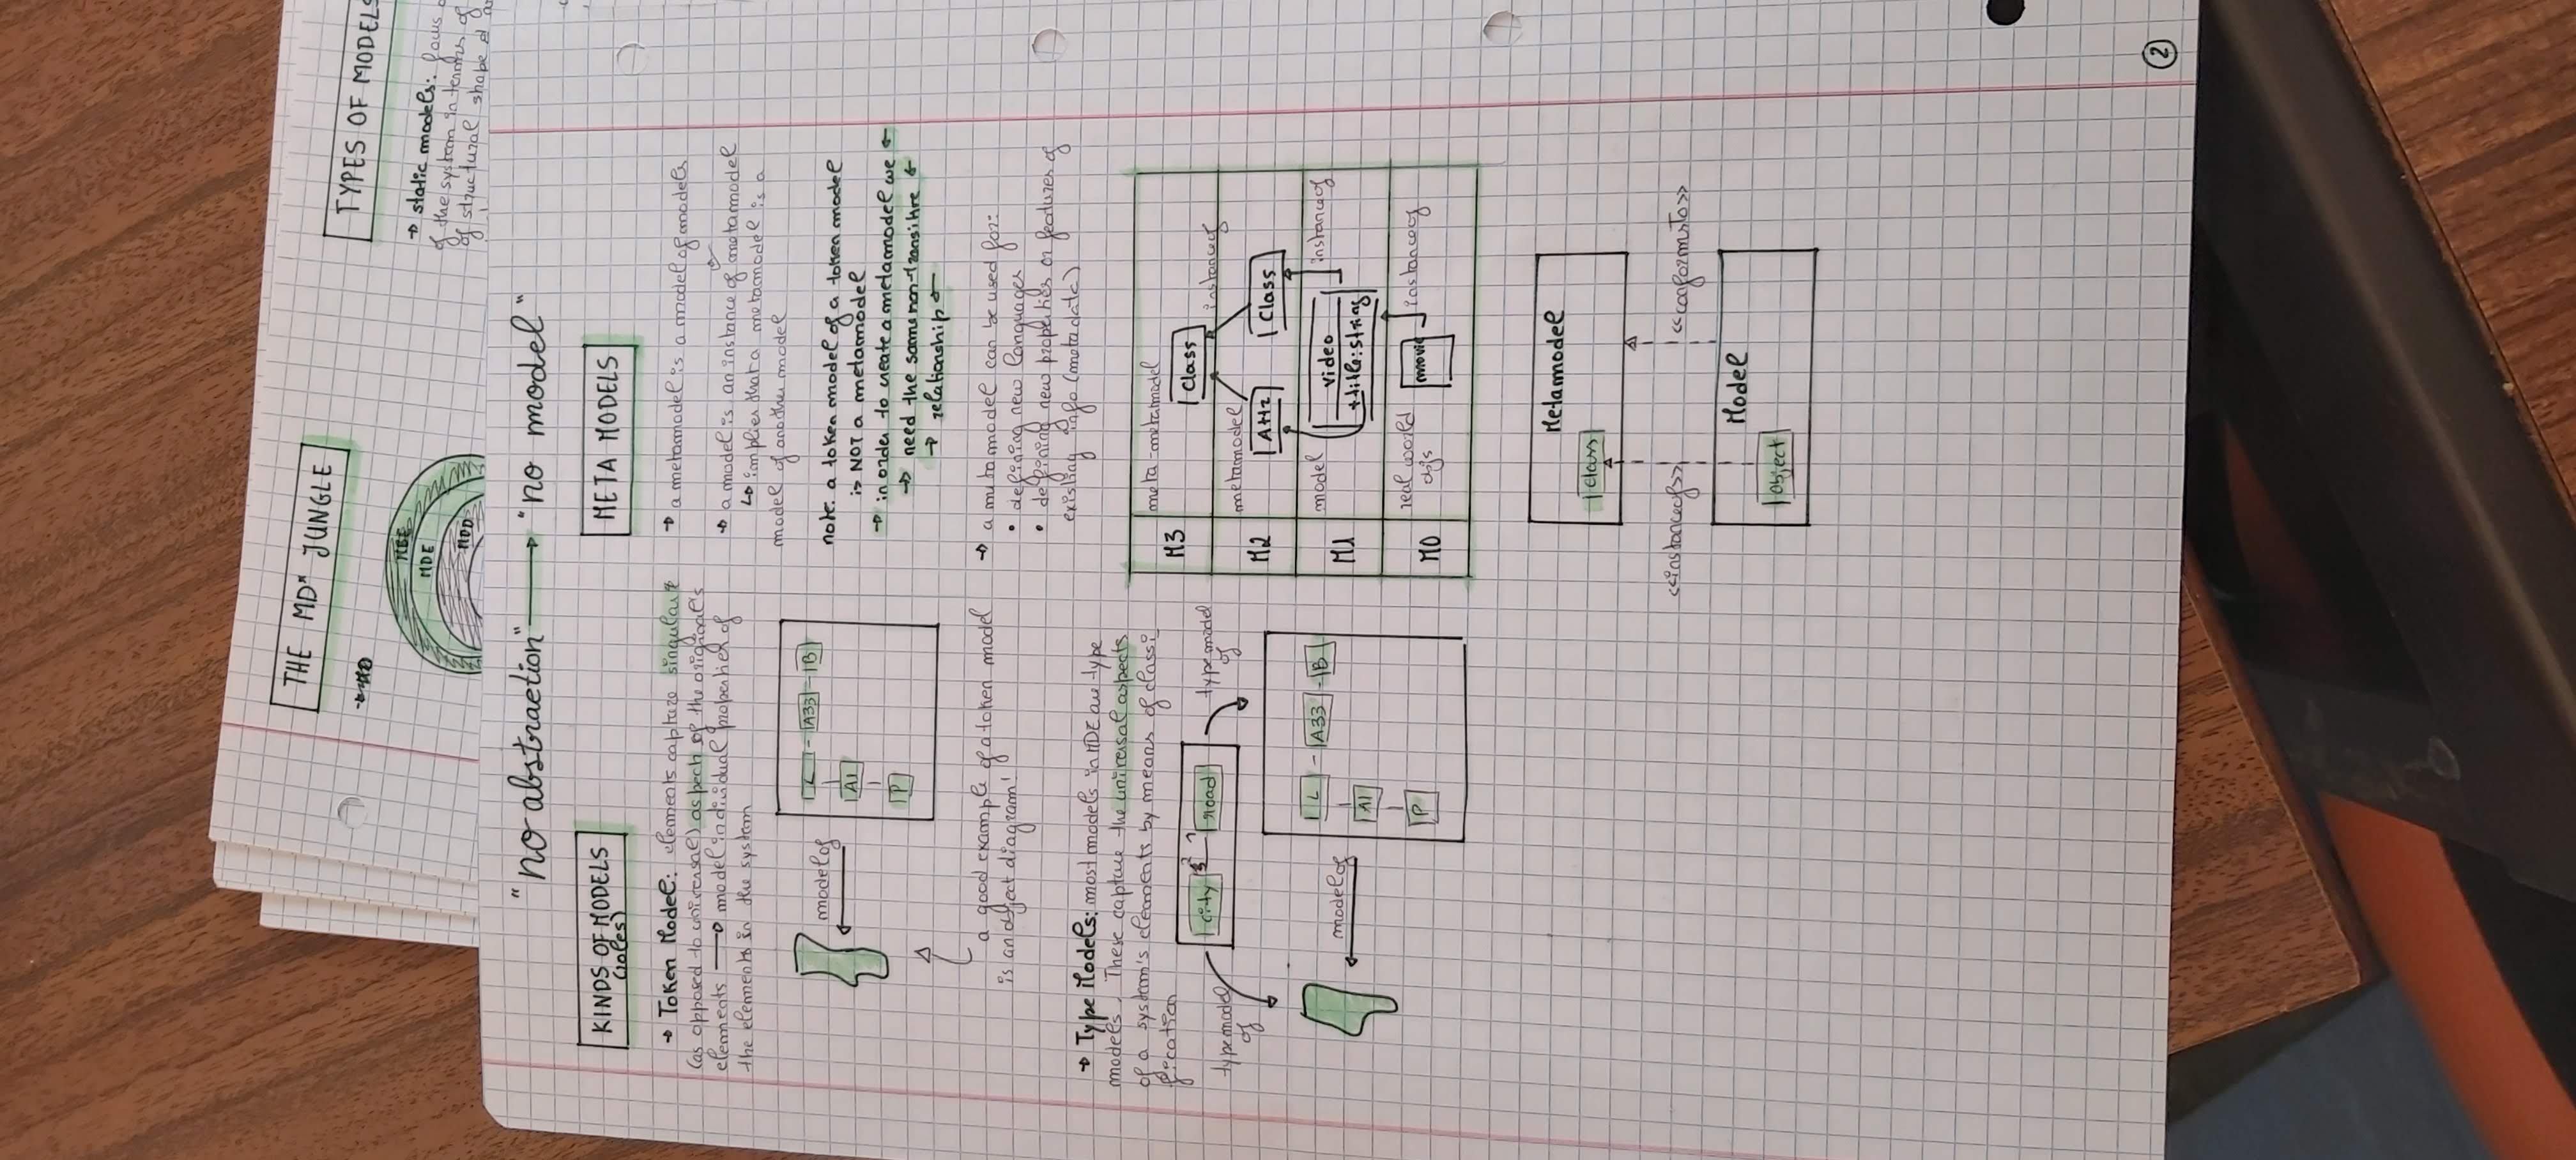 THE MD* JUNGLE
MBE
MDE
MDD
TYPES OF MODELS
→ static models: focus
of the system in terms of
of structural shape
"no abstraction" → "no model"
KINDS OF MODELS
(roles)
→ Token Model: elements capture singular
(as opposed to universal) aspects of the original's
elements → model individual properties of
the elements in the system
modelof
L - A33 - B
A1
P
a good example of a token model
is an object diagram!
→ Type Models: most models in MDE are type
models. These capture the universal aspects
of a system's elements by means of classi
fication
city
2
road
typemodel
of
typemodel
of
modelof
L - A33 - B
A1
P
META MODELS
→ a metamodel is a model of models
→ a model is an instance of metamodel
↳ implies that a metamodel is a
model of another model
note: a token model of a token model
is NOT a metamodel
→ in order to create a metamodel we ←
→ need the same non-transitive ←
→ relationship ←
→ a mutamodel can be used for:
• defining new languages
• defining new properties or features of
existing info (metadata)
M3 meta-metamodel
Class
instanceof
M2 metamodel
Class
M1 model
video
+title:string
instanceof
M0 real world
objs
movie
instanceof
Metamodel
class
<<instanceof>>
<<conformsTo>>
Model
object
2